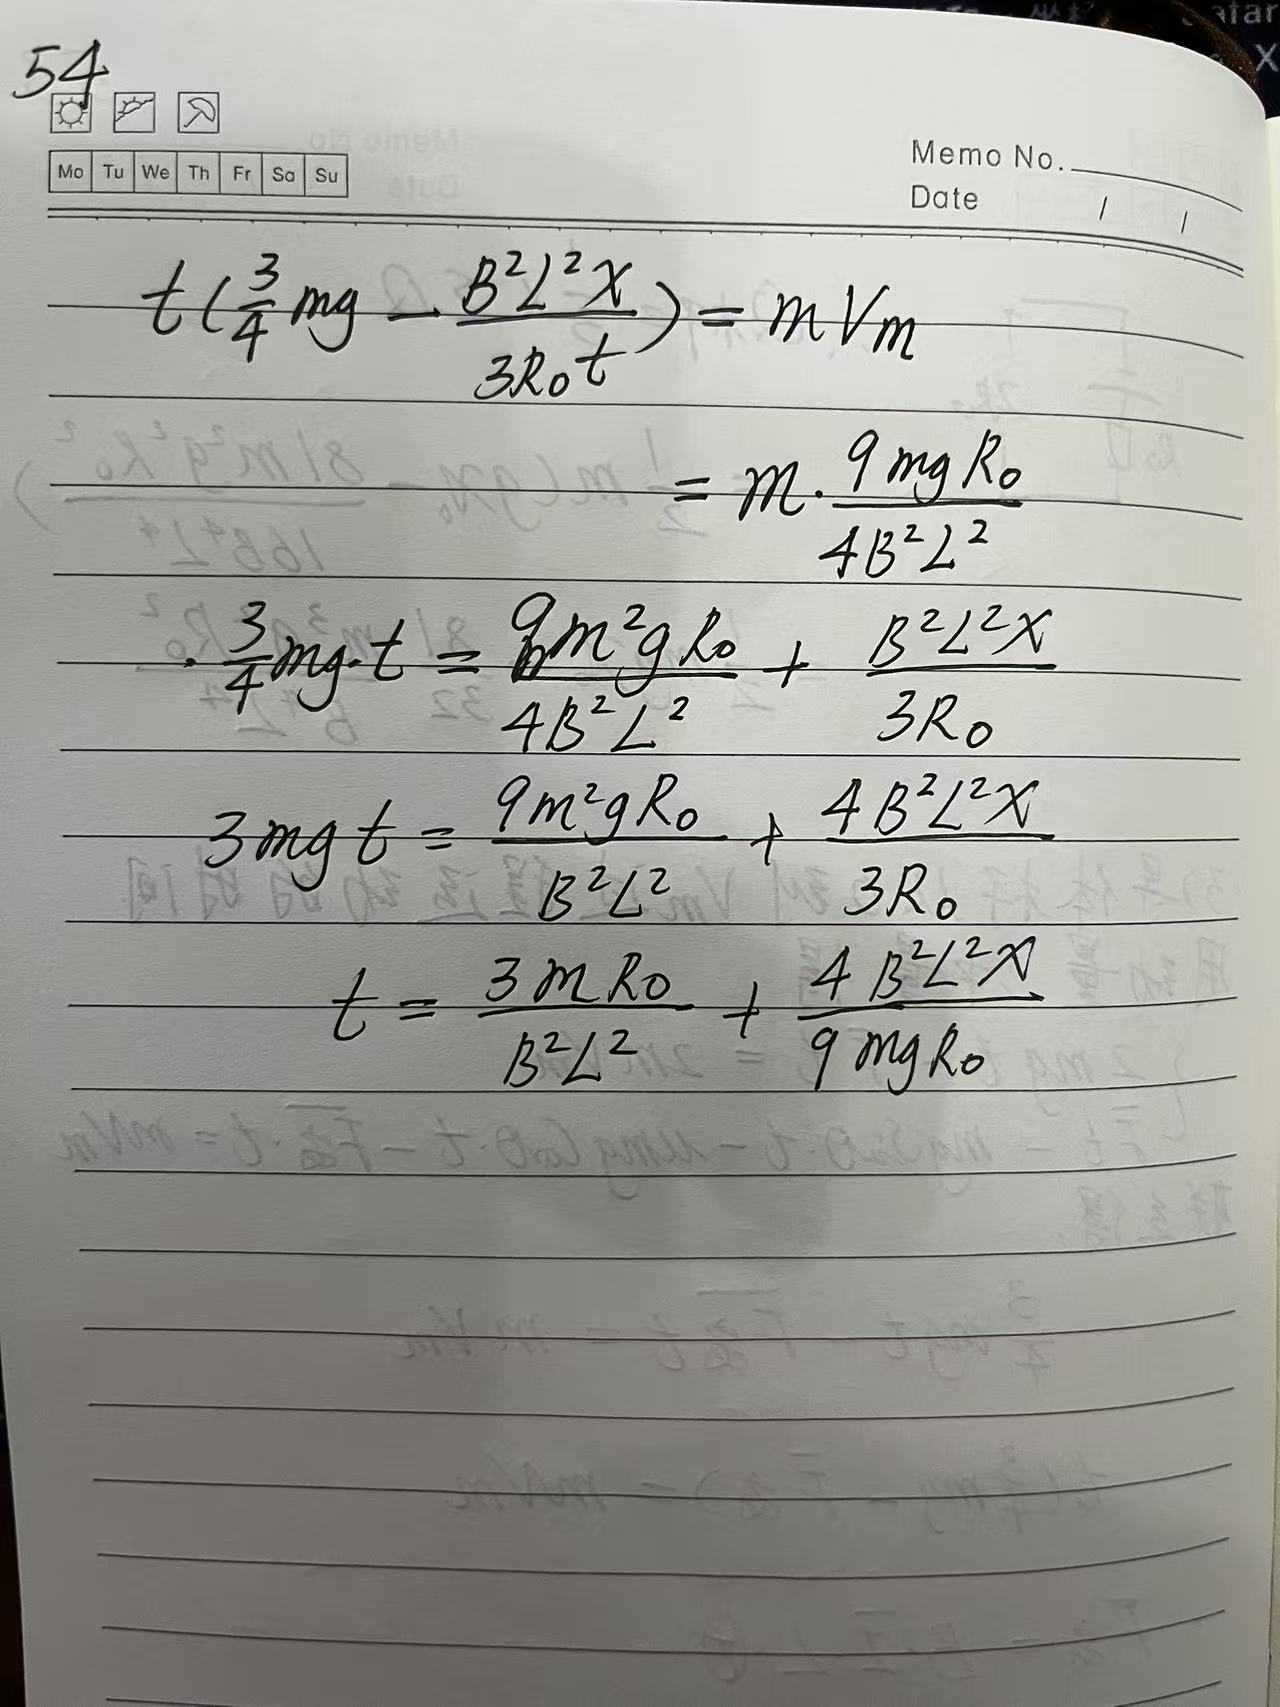 54
Mo Tu We Th Fr Sa Su
Memo No.
Date / /
t(3/4 mg - B²L²X/3R₀t) = mVm
= m·9mgR₀/4B²L²
·3/4 mg·t = 9m²gR₀/4B²L² + B²L²X/3R₀
3mgt = 9m²gR₀/B²L² + 4B²L²X/3R₀
t = 3mR₀/B²L² + 4B²L²X/9mgR₀
atar
X